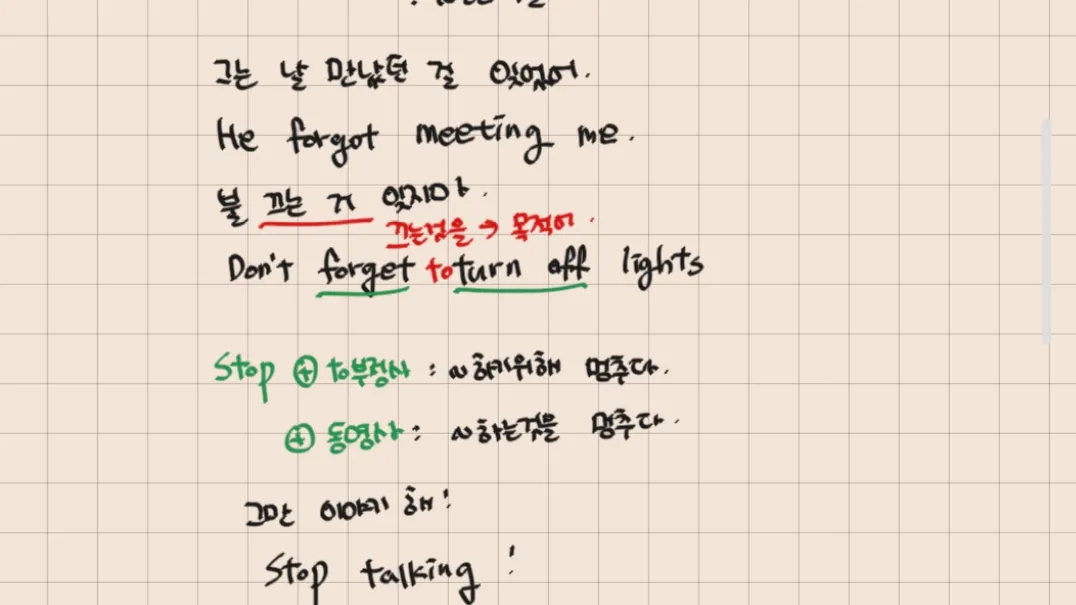 그는 날 만났던 걸 잊었어.
He forgot meeting me.
불 끄는 거 잊지마.
끄는것을 → 목적어.
Don't forget to turn off lights
Stop ⊕ to부정사 : ~하기위해 멈추다.
⊕ 동명사 : ~하는것을 멈추다.
그만 이야기 해!
Stop talking!